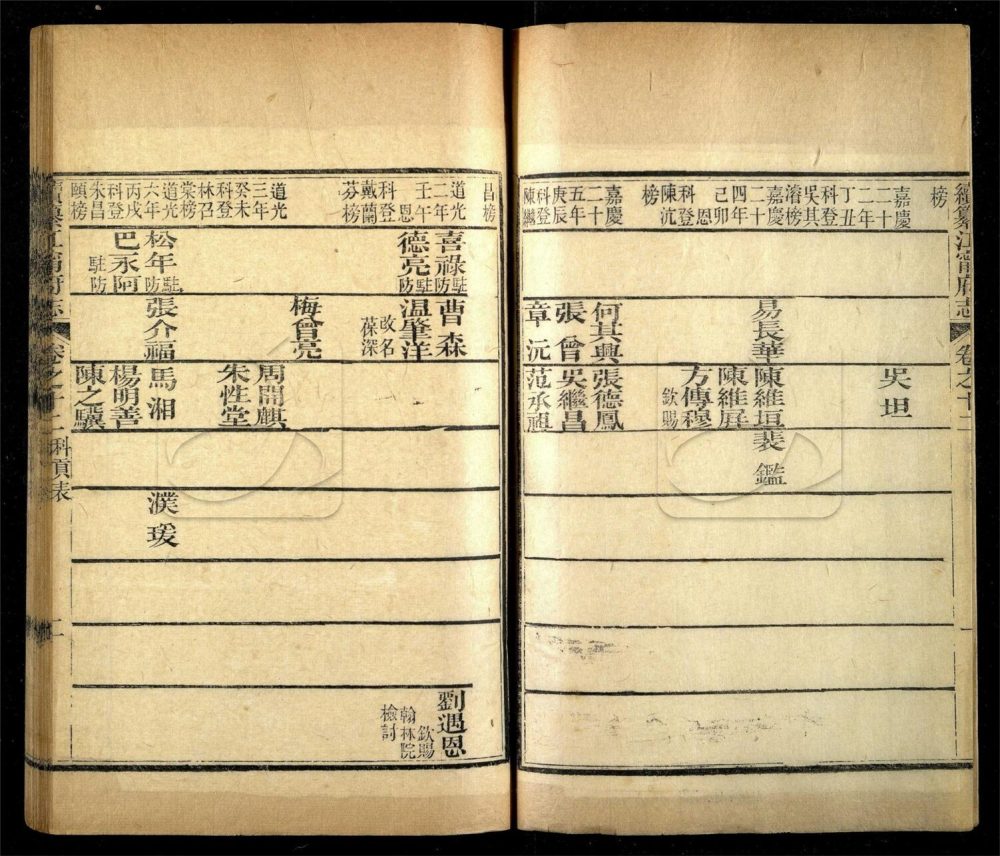 續纂江寧府志
卷之十二
一
榜
嘉慶
二十
二年
丁丑
科登
吳其
濬榜
嘉慶
二十
四年
己卯
恩
科登
陳沆
榜
嘉慶
二十
五年
庚辰
科登
陳繼
易長華
何其興
張曾
章沅
吳坦
陳維垣
陳維屏
方傳穆
欽賜
張德鳳
吳繼昌
范承祖
裴鑑
昌榜
道光
二年
壬午
恩
科登
戴蘭
芬榜
道光
三年
癸未
科登
林召
棠榜
道光
六年
丙戌
科登
朱昌
頤榜
喜祿駐防
德亮駐防
松年駐防
巴永阿
駐防
曹森
溫肇洋
改名
葆深
梅曾亮
張介福
周開麒
朱性堂
馬湘
楊明善
陳之驥
濮瑗
劉遇恩
欽賜
翰林院
檢討
續纂江寧府志
卷之十二
科貢表
二